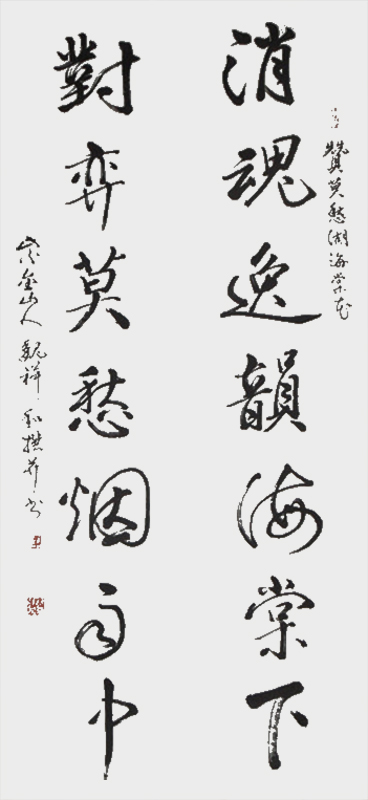 贊莫愁湖海棠花
消魂逸韻海棠下
對弈莫愁烟雨中
紫金山人祥和撰并书